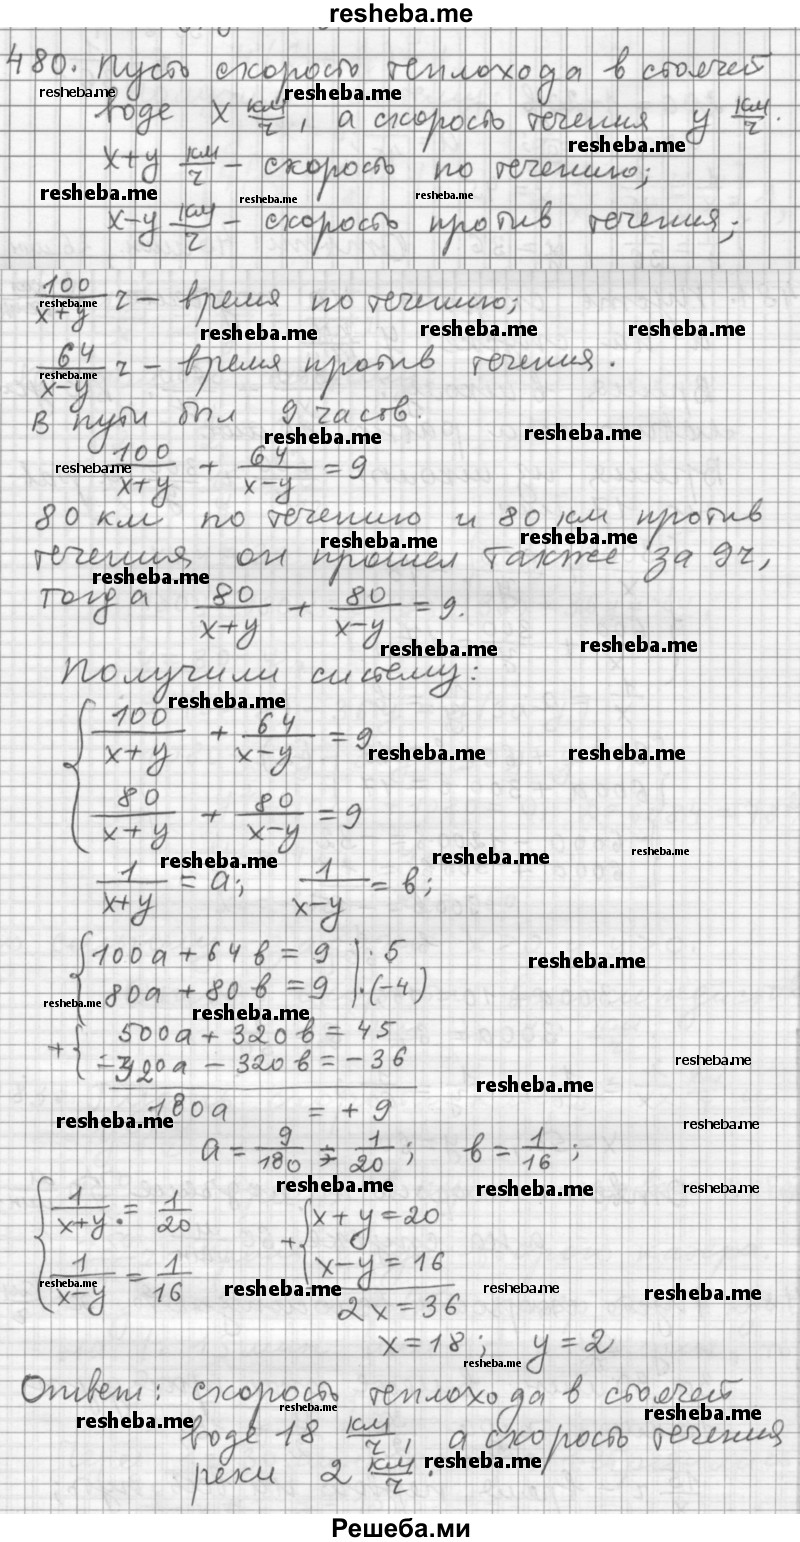 resheba.me
480. Пусть скорость теплохода в стоячей
воде x км/ч, а скорость течения y км/ч.
x+y км/ч – скорость по течению;
x–y км/ч – скорость против течения;
100/(x+y) ч – время по течению;
64/(x–y) ч – время против течения.
В пути был 9 часов.
100/(x+y) + 64/(x–y) = 9
80 км по течению и 80 км против
течения он прошел также за 9ч,
тогда 80/(x+y) + 80/(x–y) = 9.
Получили систему:
{ 100/(x+y) + 64/(x–y) = 9
80/(x+y) + 80/(x–y) = 9
1/(x+y) = a; 1/(x–y) = b;
{ 100a + 64b = 9 | ·5
80a + 80b = 9 | ·(–4)
+ { 500a + 320b = 45
–320a – 320b = –36
180a = + 9
a = 9/180 = 1/20; b = 1/16;
{ 1/(x+y) = 1/20 + { x + y = 20
1/(x–y) = 1/16 x – y = 16
2x = 36
x = 18; y = 2
Ответ: скорость теплохода в стоячей
воде 18 км/ч, а скорость течения
реки 2 км/ч.
Решеба.ми